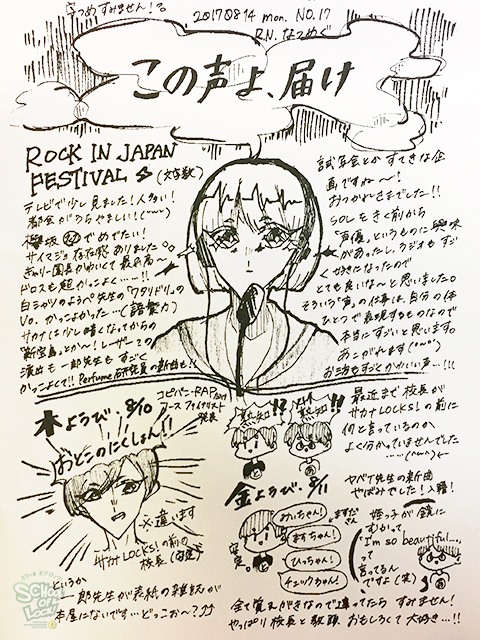 なつめすみません!
20170814 mon. NO.17
R.N. なつめぐ
この声よ、届け
ROCK IN JAPAN
FESTIVAL (文字数)
テレビで少し見ました!人多い!
都会がうらやましい!
でめでたい!
サイマジョな
ドロスも超かっこよ……!!
白シャツのようぺ先生の「ワタリドリ」の
Vo. かっこよかった…(語彙力)
サカナは少し暗くなってからの
「新宝島」とか!レーザーでの
演出も一郎先生もすごく
かっこよくて!! Perfume
試写会とかすてきな企
画ですね〜!
おつかれさまでした!!
SOLをきく前から
「声優」というものに興味
があったし、ラジオもすご
く好きになったので
とても良いな〜と思いました。
そういう「声」の仕事は、自分の体
ひとつで表現するものなので
本当にすごいと思います。
あこがれます
お二方もすごくかわいい声…!!!
木ようび・8/10
コピバニ・RAP
ファイナリスト
発表
おとこのにくしょん!!
※違います
サカナLOCKS!の前の
校長
というか
一郎先生が表紙の雑誌が
本屋にないです…どっこぉ〜?
最近まで校長が
サカナLOCKS!の前に
何と言っているのか
よく分かっていませんでした
金ようび・8/11
みっちゃん!
ますちゃん!
ひっちゃん!
チェックちゃん!
ヤバイT先生の新曲
やばみでした!入籍!
姪っ子が鏡に
むかって
"I'm so beautiful…"
って
言ってるん
ですよ(笑)
全て覚えがきなので違ってたらすみません!
やっぱり校長と教頭おもしろくて大好き…!!
SCHOOL OF LOCK!